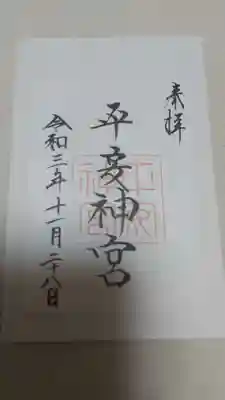 奉拝
平安神宮
令和三年十一月二十八日